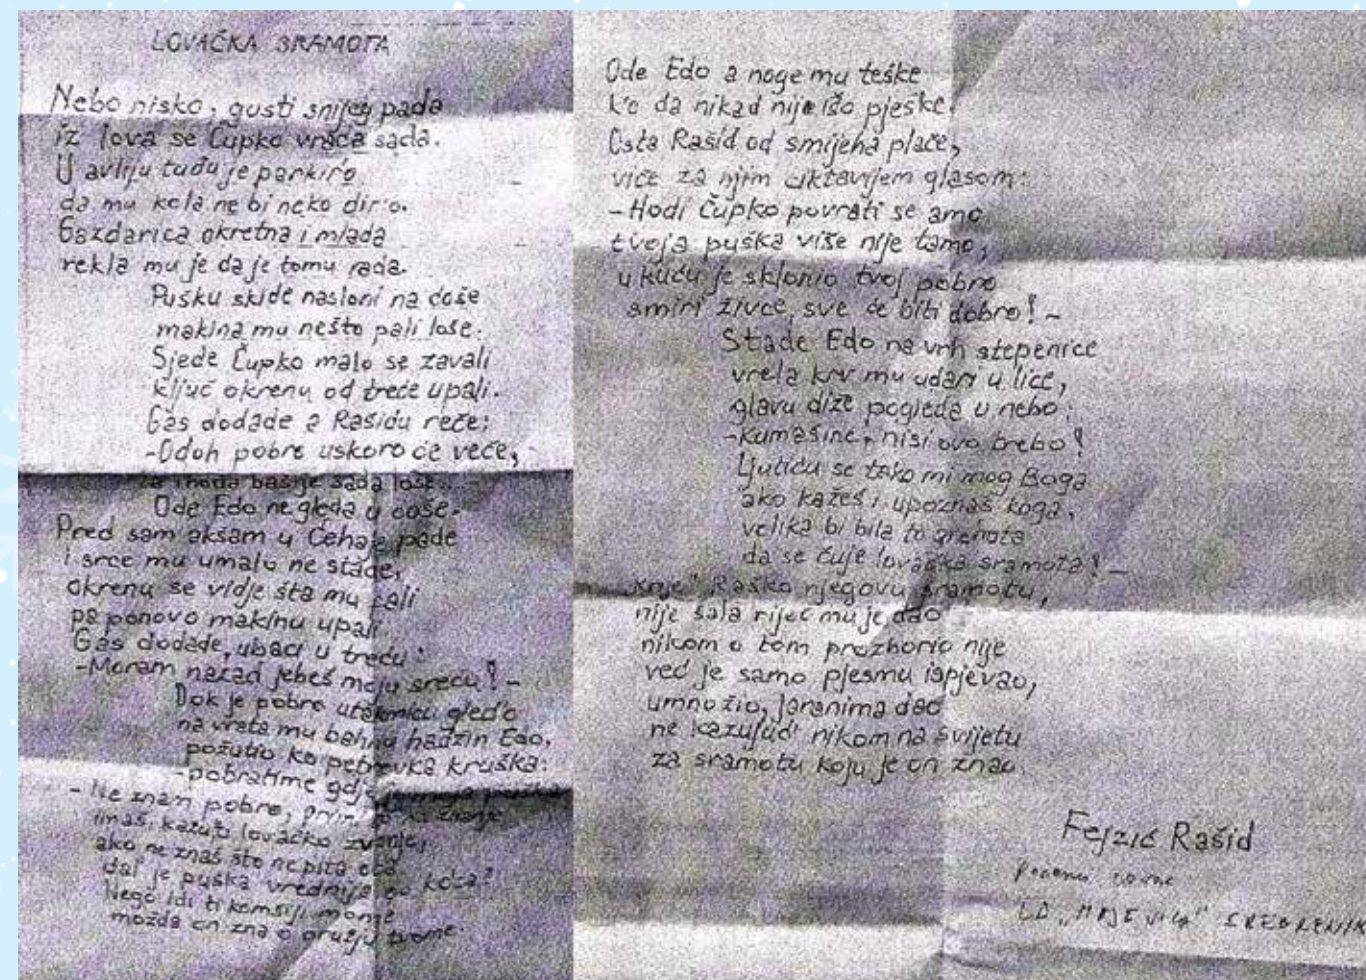 LOVAČKA SRAMOTA
Nebo nisko, gusti snijeg pada
iz lova se Čupko vraća sada.
U avliju tuđu je parkir'o
da mu kola ne bi neko dir'o.
Gazdarica okretna i mlada
rekla mu je da je tomu rada.
Pušku skide nasloni na ćoše
makina mu nešto pali loše.
Sjede Čupko malo se zavali
ključ okrenu od treće upali.
Gas dodade a Rašidu reče:
-Odoh pobro uskoro će veće,
sada loše.. -
Ode Edo ne gleda u ćoše.
Pred sam akšam u Ćehaje pade
i srce mu umalo ne stade,
okrenu se vidje šta mu fali
pa ponovo makinu upali.
Gas dodade, ubaci u treću:
-Moram nazad jebeš moju sreću! -
Dok je pobro utakmicu gled'o
na vrata mu bahnu hadžin Edo,
požutio ko petrovka kruška:
-pobratime gdje
- Ne znam pobro,
imaš, kažu, ti lovačko zvanje,
ako ne znaš što ne pita
dal' je puška vrednija
Nego idi ti komšiji
možda on zna o oružju tvome.
Ode Edo a noge mu teške
k'o da nikad nije iš'o pješke.
Osta Rašid od smijeha plače,
viče za njim glasom:
-Hodi Čupko povrati se amo
tvoja puška više nije tamo,
u kuću je sklonio tvoj pobro
smiri živce, sve će biti dobro! -
Stade Edo na vrh stepenice
vrela krv mu udari u lice,
glavu diže pogleda u nebo:
-kumašine, nisi ovo trebo!
Ljutiću se tako mi mog Boga
ako kažeš i upoznaš koga,
velika bi bila to grehota
da se čuje lovačka sramota! -
"krije" Raško njegovu sramotu,
nije šala riječ mu je dao
nikom o tom prozborio nije
već je samo pjesmu ispjevao,
umnožio, jaranima dao
ne kazujući nikom na svijetu
za sramotu koju je on znao.
Fejzić Rašid
LD "MAJEVICA" SREBRENIK